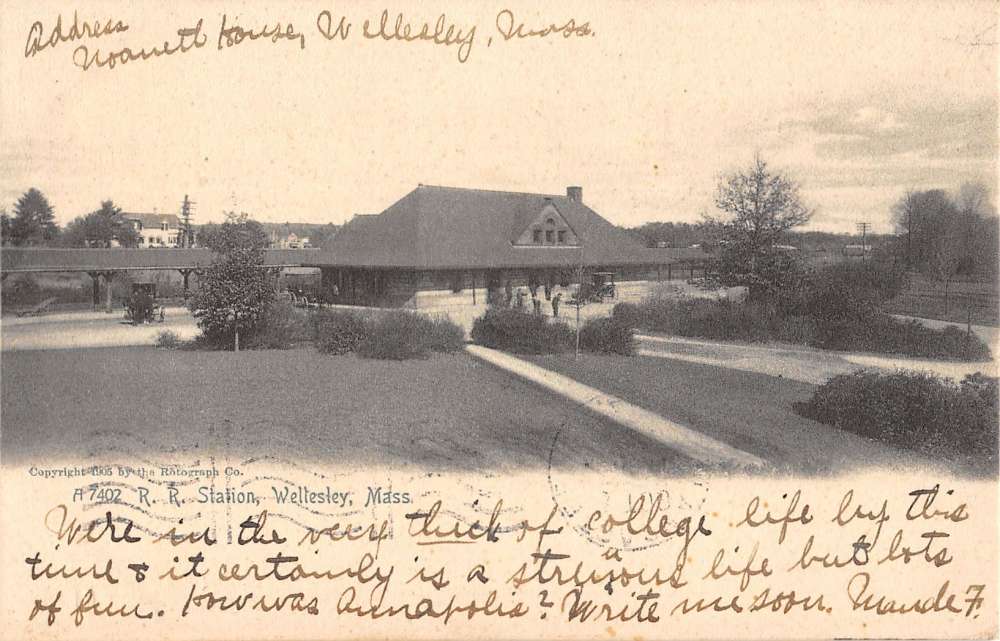 Address
Noanett House, Wellesley, Mass.
Copyright 1905 by the Rotograph Co.
A 7402 R. R. Station, Wellesley, Mass.
Were in the very thick of college life by this
time & it certainly is a strenuous life but lots
of fun. How was Annapolis? Write me soon. Maude F.